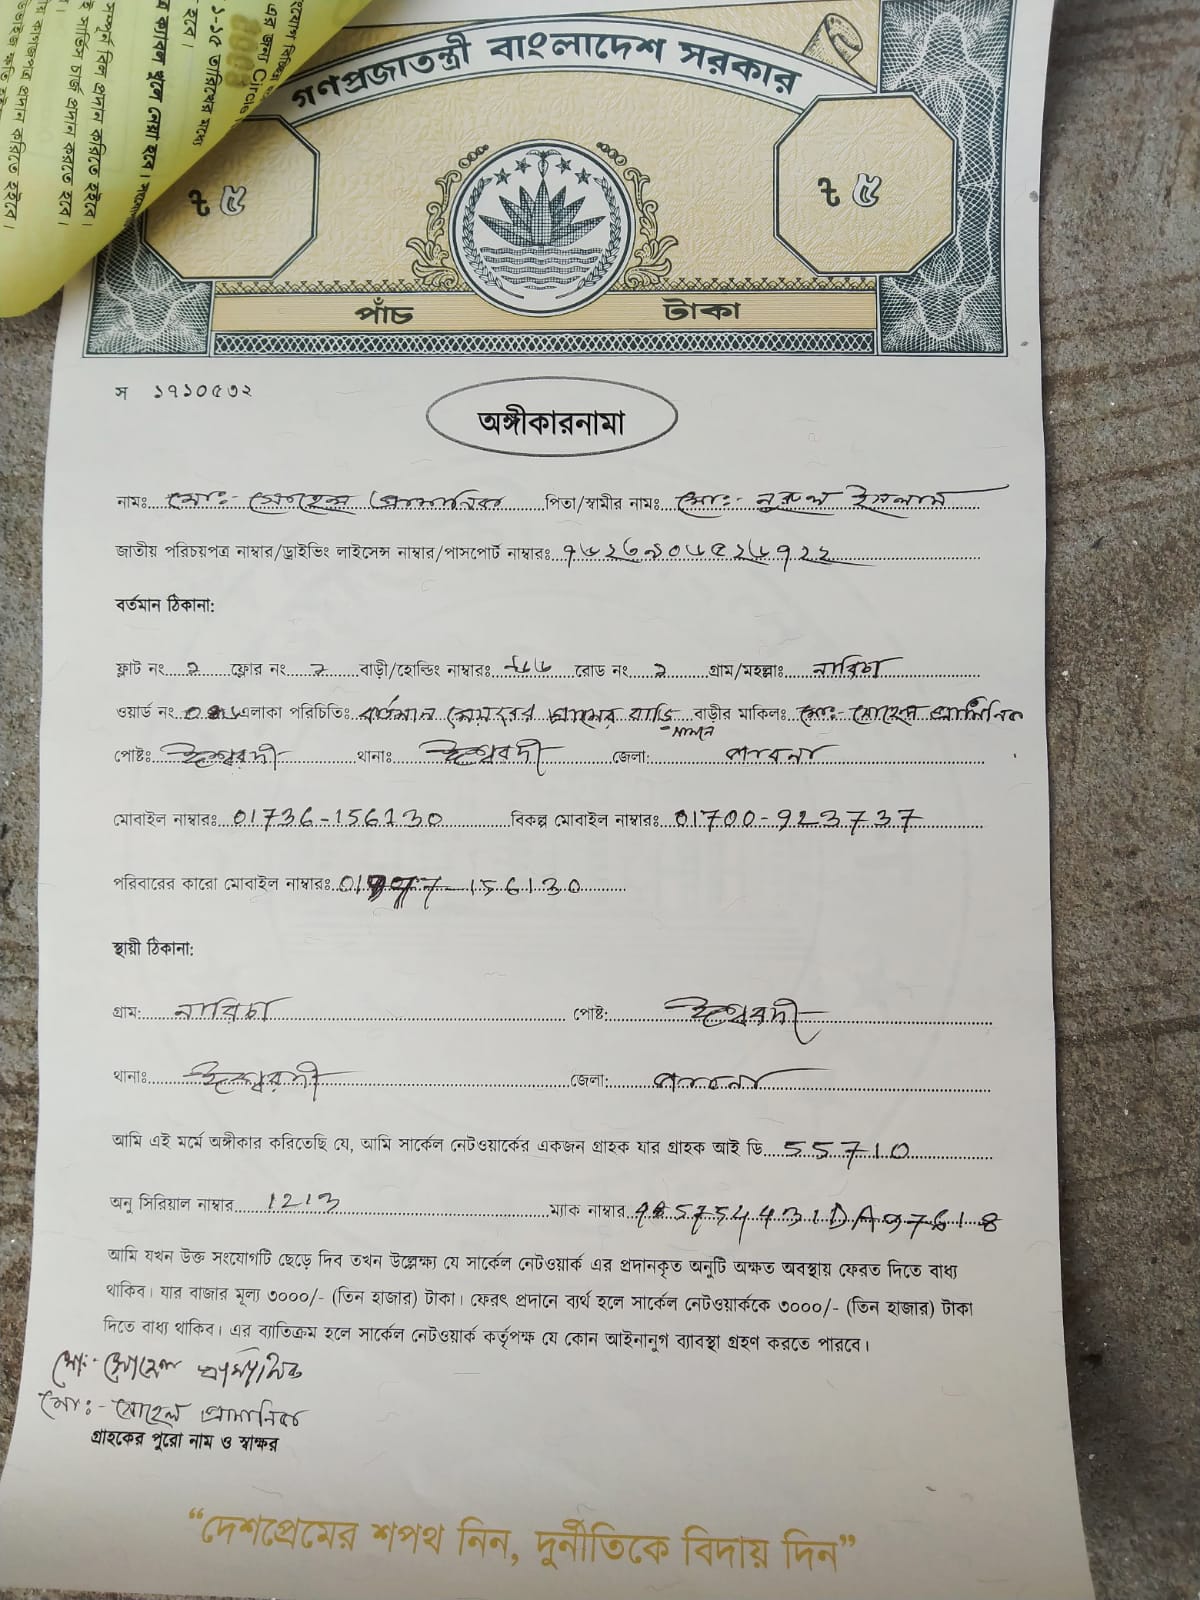 সম্পূর্ণ বিল প্রদান করিতে হইবে।
সার্ভিস চার্জ প্রদান করতে হবে।
ক্যাবল খুলে নেয়া হবে।
১-১৫ তারিখের মধ্যে
এর জন্য Circle
গণপ্রজাতন্ত্রী বাংলাদেশ সরকার
৳ ৫ ৳ ৫
পাঁচ টাকা
স ১৭১০৫৩২
অঙ্গীকারনামা
নামঃ মোঃ- সোহেল প্রামানিক পিতা/স্বামীর নামঃ মোঃ- নুরুল ইসলাম
জাতীয় পরিচয়পত্র নাম্বার/ড্রাইভিং লাইসেন্স নাম্বার/পাসপোর্ট নাম্বারঃ
বর্তমান ঠিকানা:
ফ্লাট নং ফ্লোর নং বাড়ী/হোল্ডিং নাম্বারঃ রোড নং গ্রাম/মহল্লাঃ নারিচা
ওয়ার্ড নং এলাকা পরিচিতিঃ বর্তমান মেয়রের বাড়ি সামনে বাড়ীর মালিকঃ মোঃ- সোহেল প্রামানিক
পোষ্টঃ ঈশ্বরদী থানাঃ ঈশ্বরদী জেলা: পাবনা
মোবাইল নাম্বারঃ 01736-156130 বিকল্প মোবাইল নাম্বারঃ 01700-923737
পরিবারের কারো মোবাইল নাম্বারঃ
স্থায়ী ঠিকানা:
গ্রাম: নারিচা পোষ্ট: ঈশ্বরদী
থানাঃ ঈশ্বরদী জেলা: পাবনা
আমি এই মর্মে অঙ্গীকার করিতেছি যে, আমি সার্কেল নেটওয়ার্কের একজন গ্রাহক যার গ্রাহক আই ডি 55710
অনু সিরিয়াল নাম্বার 1213 ম্যাক নাম্বার
আমি যখন উক্ত সংযোগটি ছেড়ে দিব তখন উল্লেক্ষ্য যে সার্কেল নেটওয়ার্ক এর প্রদানকৃত অনুটি অক্ষত অবস্থায় ফেরত দিতে বাধ্য
থাকিব। যার বাজার মূল্য ৩০০০/- (তিন হাজার) টাকা। ফেরৎ প্রদানে ব্যর্থ হলে সার্কেল নেটওয়ার্ককে ৩০০০/- (তিন হাজার) টাকা
দিতে বাধ্য থাকিব। এর ব্যাতিক্রম হলে সার্কেল নেটওয়ার্ক কর্তৃপক্ষ যে কোন আইনানুগ ব্যাবস্থা গ্রহণ করতে পারবে।
মোঃ- সোহেল প্রামানিক
মোঃ- সোহেল প্রামানিক
গ্রাহকের পুরো নাম ও স্বাক্ষর
“দেশপ্রেমের শপথ নিন, দুর্নীতিকে বিদায় দিন”